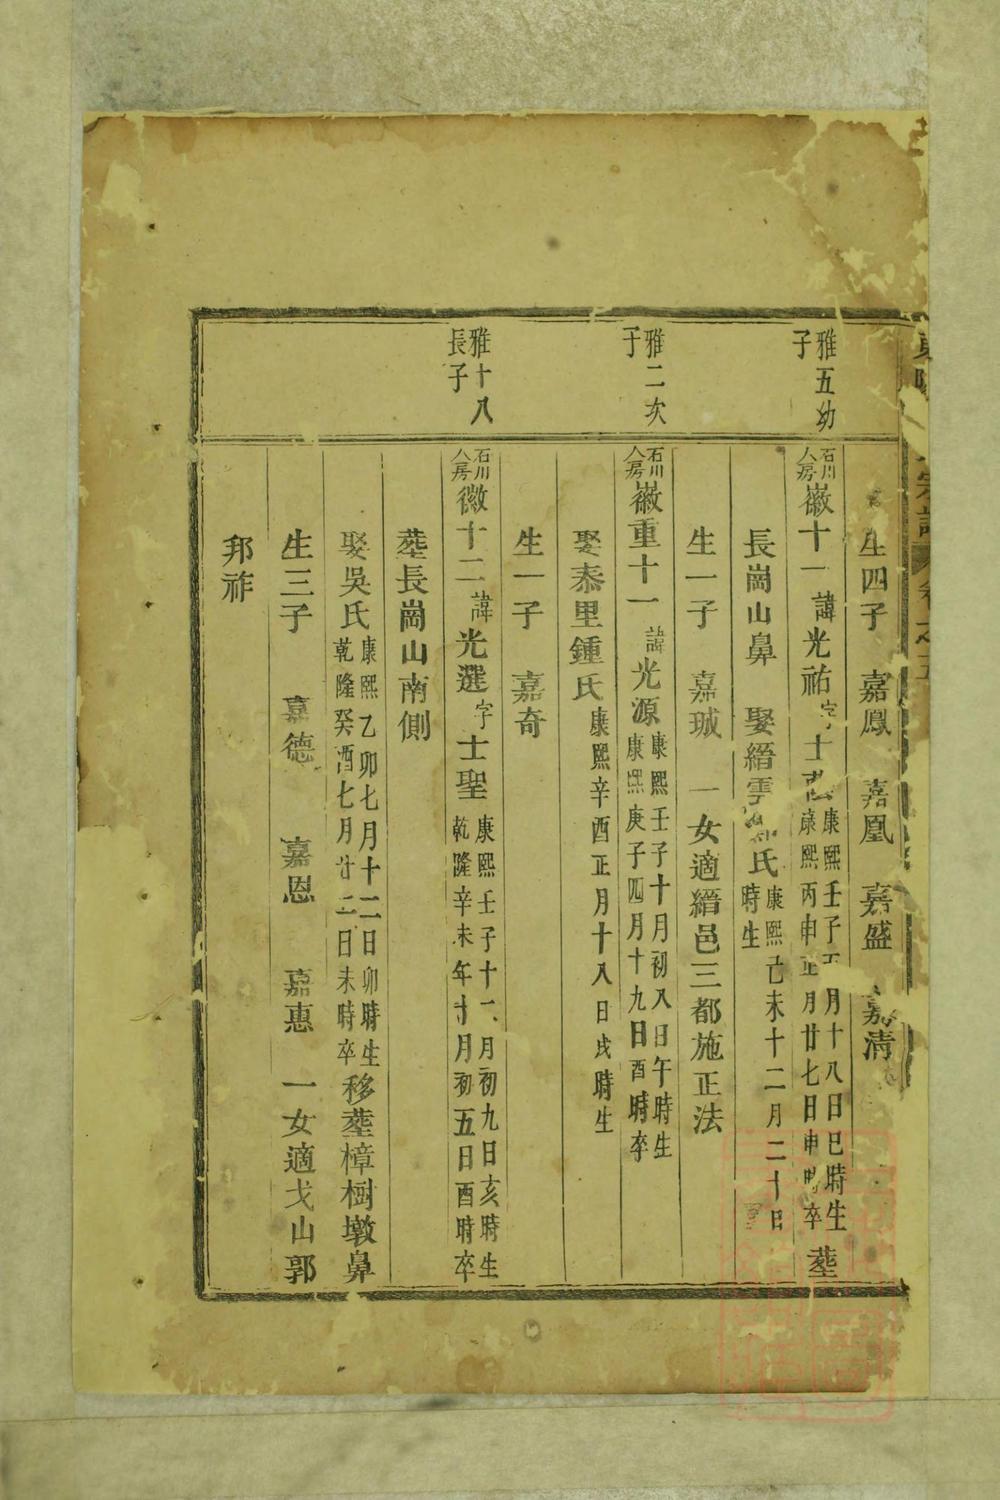 宗譜 卷之五
生四子 嘉鳳 嘉凰 嘉盛 嘉清
雅五幼子
石川八房 徽十一 諱光祐 字士 康熙壬子 月十八日巳時生 康熙丙申正月廿七日申時卒 塟
長崗山鼻 娶縉雲 氏 康熙己未十二月二十日 時生
生一子 嘉珹 一女適縉邑三都施正法
雅二次子
石川八房 徽重十一 諱光源 康熙壬子十月初八日午時生 康熙庚子四月十九日酉時卒
娶泰里鍾氏 康熙辛酉正月十八日戌時生
生一子 嘉奇
雅十八長子
石川八房 徽十二 諱光選 字士聖 康熙壬子十二月初九日亥時生 乾隆辛未年十月初五日酉時卒
塟長崗山南側
娶吳氏 康熙乙卯七月十二日卯時生 乾隆癸酉七月廿二日未時卒 移塟樟樹墩鼻
生三子 嘉德 嘉恩 嘉惠 一女適戈山郭
邦祚